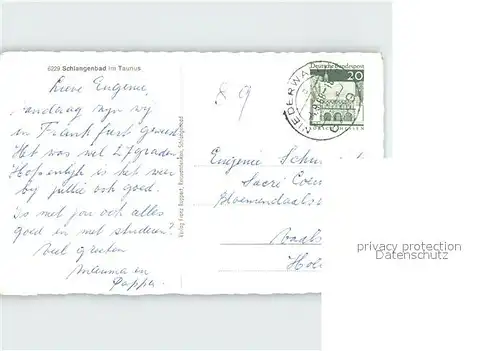 6229 Schlangenbad im Taunus
Lieve Eugenie,
Zondag zijn wij
in Frankfurt geweest
Het was wel 27 graden
Hopenlijk is het weer
bij jullie ook goed.
Is met jou ook alles
goed en met studeren?
Veel groeten
Mamma en
Pappa.
Verlag Franz Rappert, Schlangenbad
8 9
NIEDERWA
Deutsche Bundespost
20
LORSCH/HESSEN
Eugenie Sch
Sacré Coeu
Bloemendaals
Vaals
Hol
privacy protection
Datenschutz